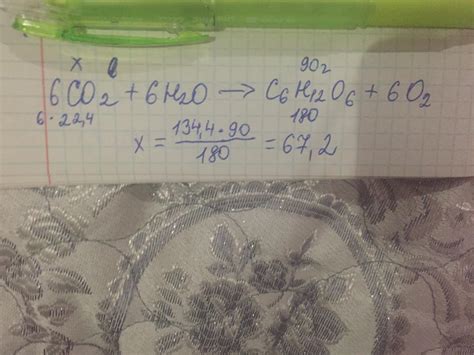 x л 90г
6CO2 + 6H2O → C6H12O6 + 6O2
6·22,4 180
x = 134,4·90 / 180 = 67,2